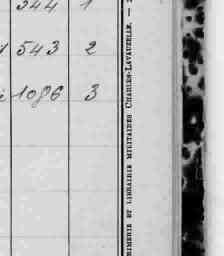 344 1
543 2
1086 3
RIMERIE ET LIBRAIRIE MILITAIRES CHARLES-LAVAUZELLE. —